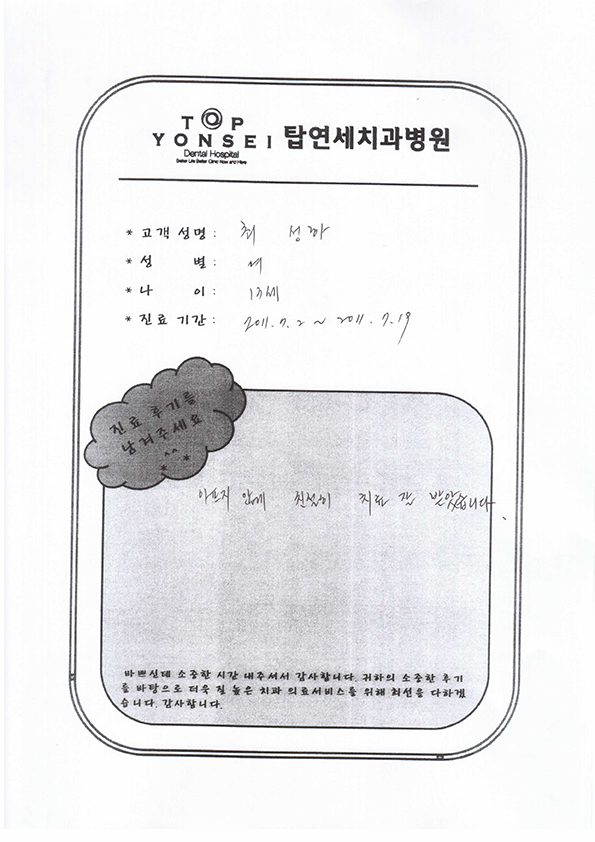 TOP
YONSEI 탑연세치과병원
Dental Hospital
Better Life Better Clinic Now and Here
* 고객 성명 : 최 성
* 성 별 : 여
* 나 이 : 13세
* 진료 기간 : 2011. 7. 2 ~ 2011. 7. 19
진료 후기를
남겨주세요
^^
* *
아프지 않게 친절히 치료 잘 받았습니다.
바쁘신데 소중한 시간 내주셔서 감사합니다. 귀하의 소중한 후기
를 바탕으로 더욱 질 높은 치과 의료서비스를 위해 최선을 다하겠
습니다. 감사합니다.